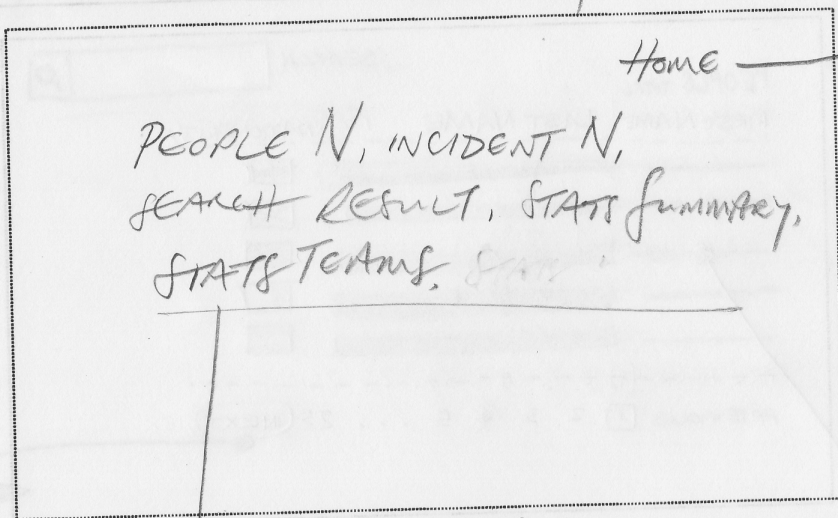 HOME
PEOPLE N, INCIDENT N,
SEARCH RESULT, STATS SUMMARY,
STATS TEAMS.